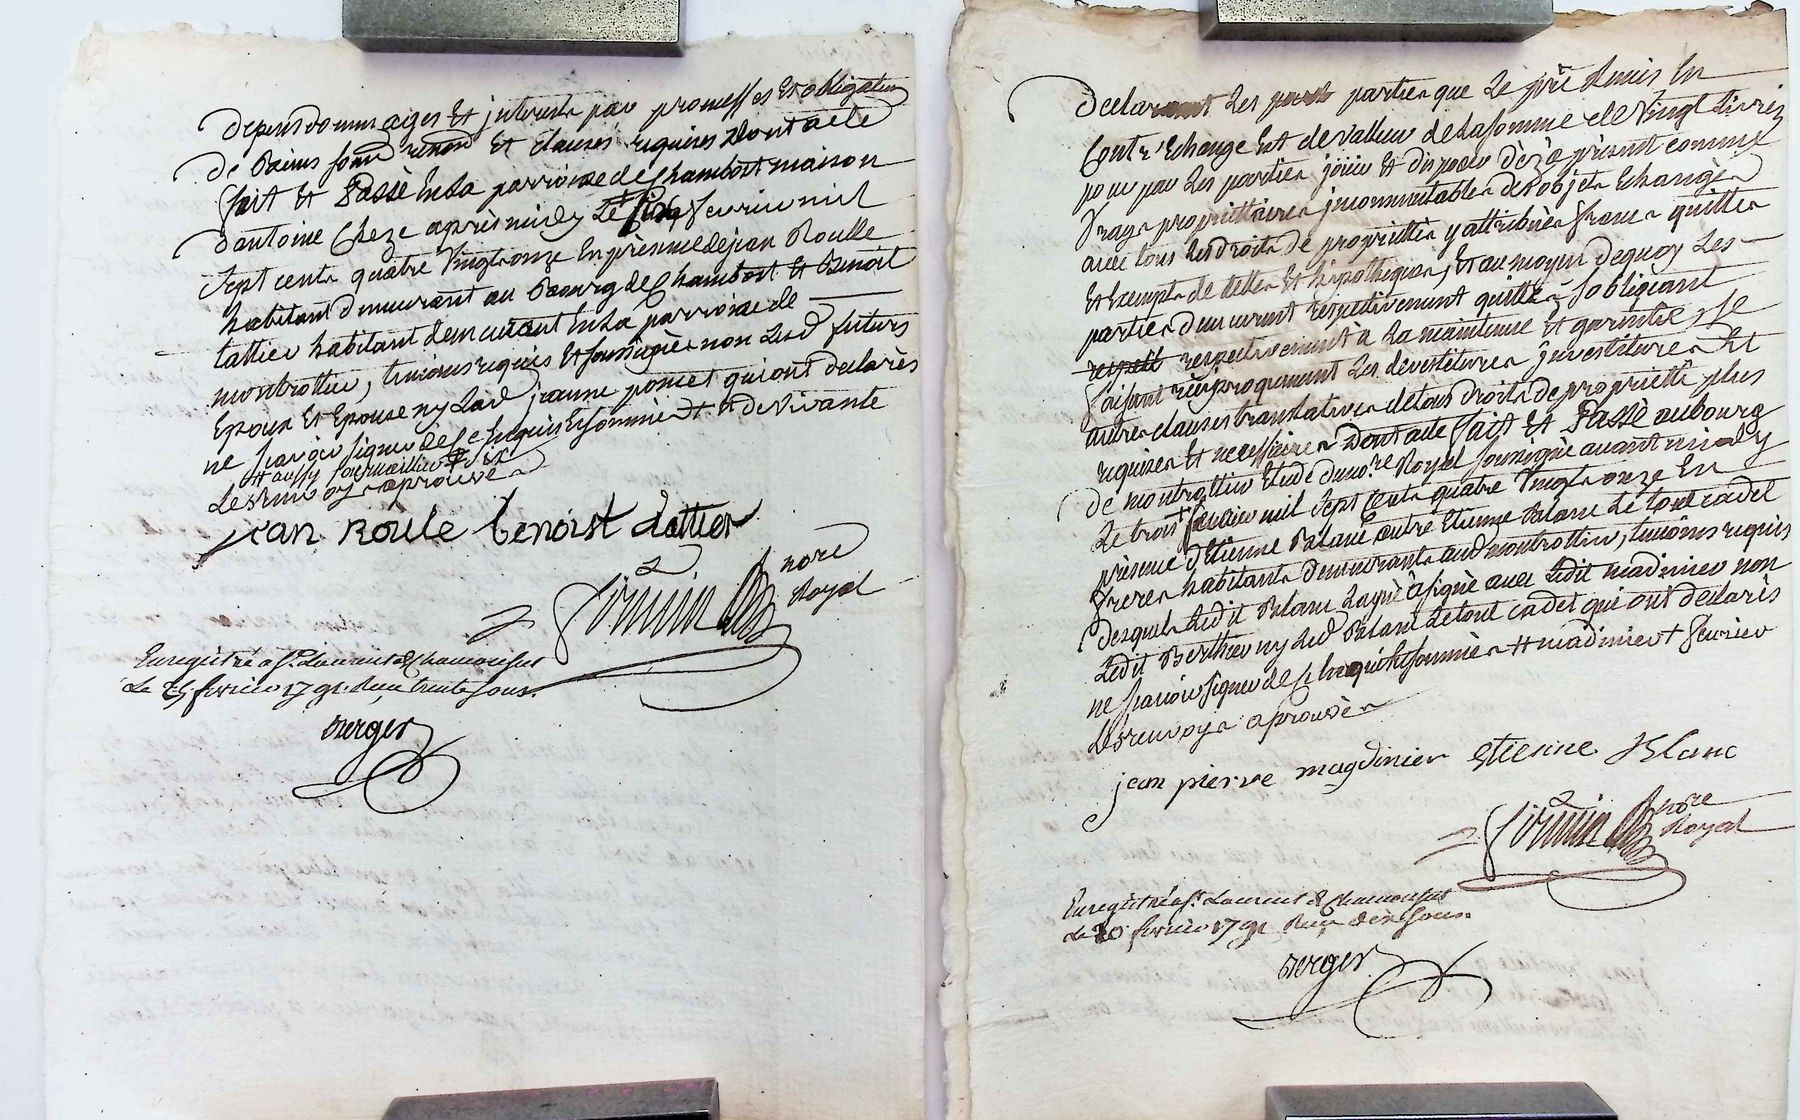 depens dommages et interests par promesses et obligation
de biens soum renon et clauses requises dont acte
fait et Passé en la parroisse de Chambost maison
d'antoine Cheze après midy le fevrier mil
sept cents quatre vingt onze en présence de jean Roulle
habitant demeurant au Bourg de Chambost et Benoit
lattier habitant demeurant en la parroisse de
montrottier, temoins requis et soussignés non lesd futurs
Epoux et Epouse ny lad jeanne poncet qui ont declarés
ne savoir signer de ce enquis et sommés # et de vivante
# aussy
les renvoys aprouvés
jean Roule benoist lattier
nore
Royal
Enregistré a St Laurent de Chamousset
Le 25 fevrier 1791. Reçu trente sous.
Berger
declarant les parties que le prix Remis en
Contr'Echange est de valleur de la somme de Vingt Livres
pour par les parties jouir et disposer dèz à présent comme
vrays propriettaires jncommutables des objets Echangés
avec tous les droits de propriettés y attribués francs quittes
et Exempts de dettes et hipotheques, Et au moyen de quoy les
parties demeurent respectivement quittes s'obligeant
respectivement a la maintenue et garentie, se
faisant réciproquement les devestitures jnvestitures et
autres clauses translatives de tous droits de propriettés plus
requises et necessaires Dont acte fait et Passé au bourg
de montrottier Etude du nore Royal soussigné avant midy
Le trois fevrier mil sept cents quatre vingts onze En
présence d'Etienne Blanc autre Etienne Blanc Le tout cadet
freres habitants demeurants aud montrottier, temoins requis
desquels ledit Blanc L'ayné a signé avec Ledit madinier non
Ledit Berthier ny led Blanc Le tout cadet qui ont declarés
ne savoir signer de ce Enquis et sommés # madinier + fevrier
les renvoys aprouvés
jean pierre magdinier etienne Blanc
nore
Royal
Enregistré a St Laurent de Chamousset
Le 10 fevrier 1791 Reçu dix sous.
Berger